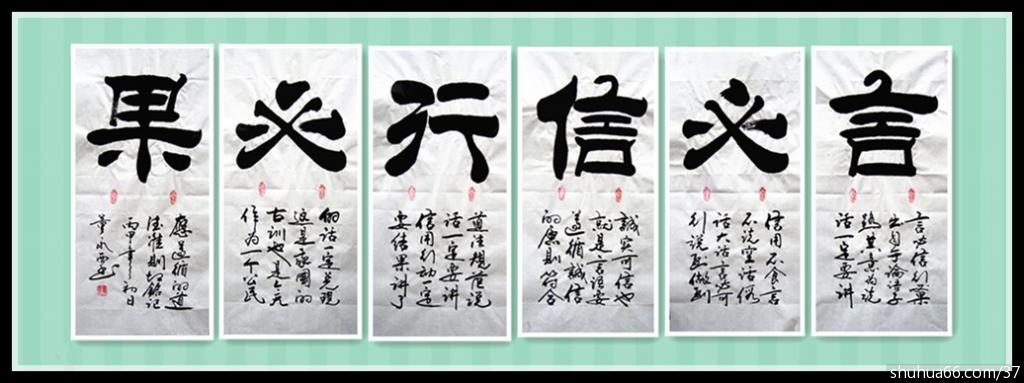 言
言必信行果
出自于論语子
其意为说
话一定要讲
必
信用不食言
不说空话假
话大话言必可
行说到做到
信
誠实可信也
就是言语要
遵循誠信
的原则符合
行
道法規范说
话一定要讲
信用行动一定
要结果讲了
必
的话一定兑现
这是我國的
古训也是今天
作为一个公民
果
應遵循的道
德准则切銘记
丙申年初日
shuhua66.com/37